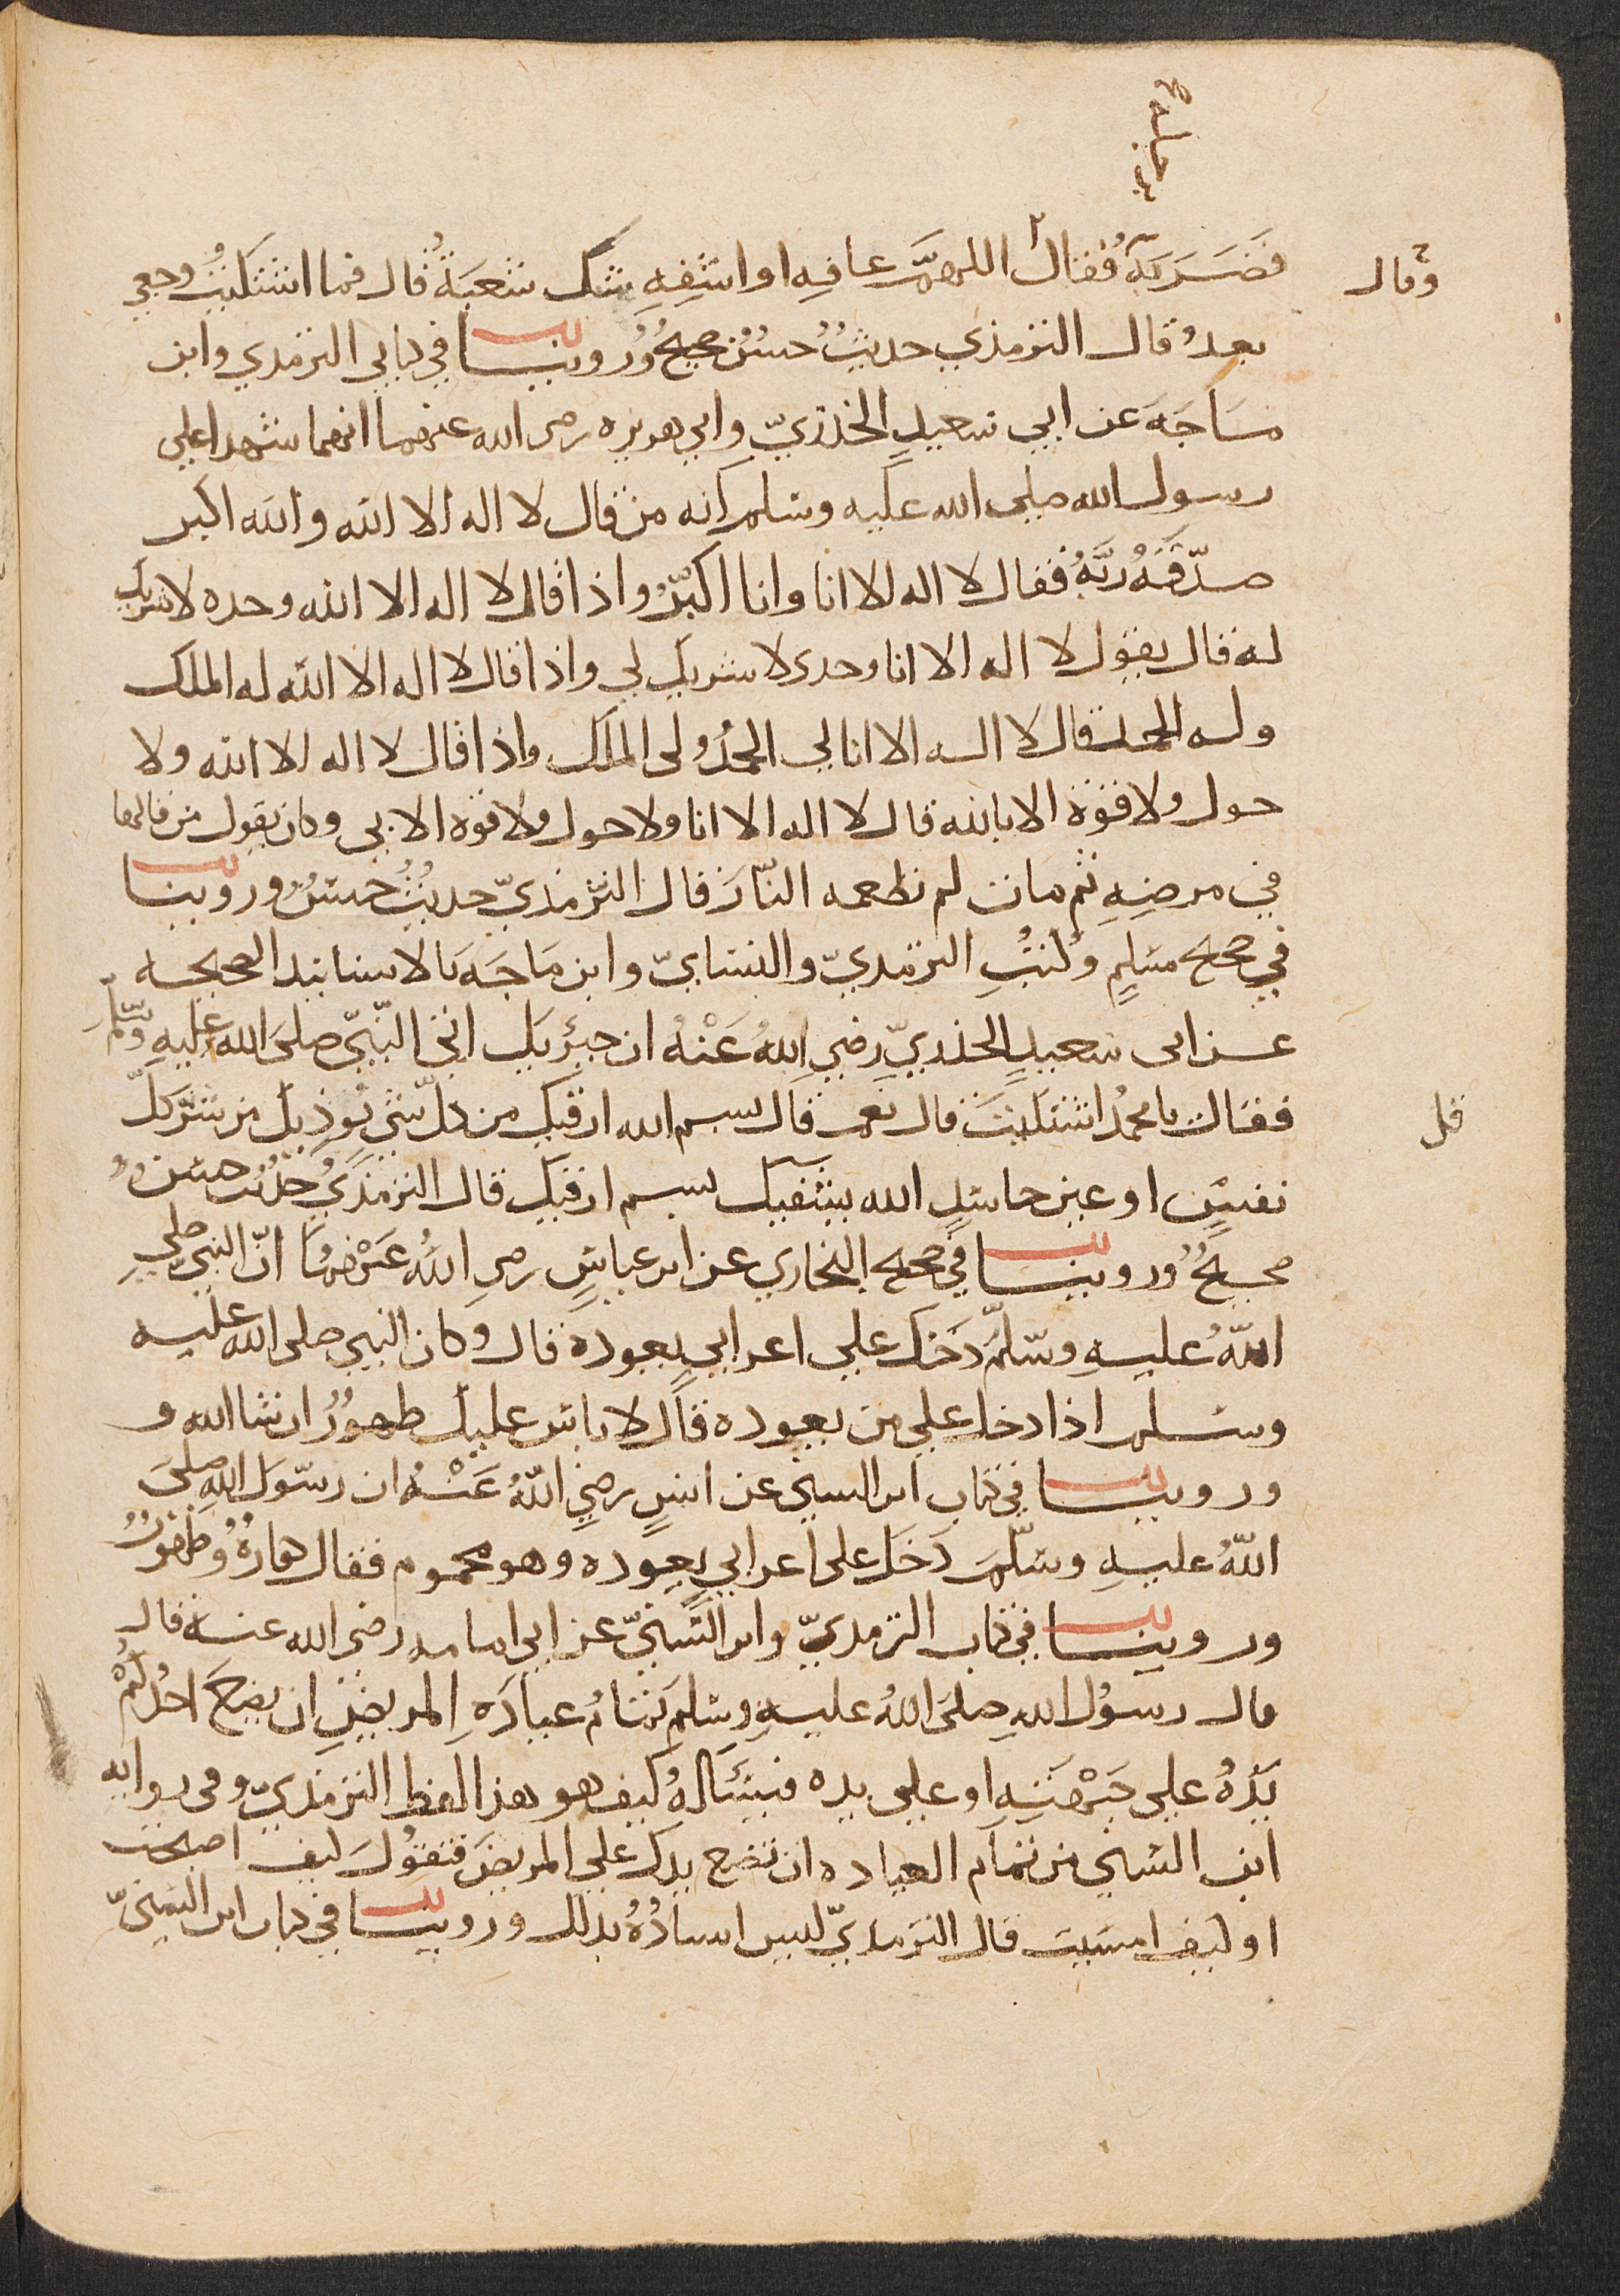 برجله
وقال
فضربه فقال اللهمَّ عافه او اشفه شك شعبة قال فما اشتكيت وجعي
بعد قال الترمذي حديث حسن صحيح وروينا في كتابي الترمذي وابن
ماجَه عن ابي سعيدٍ الخدريّ وابي هريره رضي الله عنهما انهما شهدا علي
رسول الله صلي الله عليه وسلم انه من قال لا اله الا الله والله اكبر
صدّقه ربّه فقال لا اله الا انا وانا اكبر واذا قال لا اله الا الله وحده لا شريك
له قال يقول لا اله الا انا وحدي لا شريك لي واذا قال لا اله الا الله له الملك
وله الحمد قال لا اله الا انا لي الحمد ولي الملك واذا قال لا اله الا الله ولا
حول ولا قوة الا بالله قال لا اله الا انا ولا حول ولا قوة الا بي وكان يقول من قالها
في مرضه ثم مات لم تطعمه النّار قال الترمذيّ حديث حسن وروينا
في صحيح مسلمٍ وكتب الترمذيّ والنسايّ وابن ماجَه بالاسانيد الصحيحه
عن ابي سعيدٍ الخدريّ رضي الله عَنْه ان جبرئيل اتي النّبيّ صلى الله عليه وسلّم
فقال يا محمد اشتكيتَ قال نعم قال بسم الله ارقيك من كلّ شيٍ يوذيك من شرّ كلّ
قل
نفسٍ او عين حاسدٍ الله يشفيك بسم ارقيك قال الترمذي حديث حسن
صحيحٌ وروينا في صحيح البخاري عن ابن عباسٍ رضي اللهُ عَنْهُمَا انّ النبيّ صلي
اللهُ عليهِ وسلّمَ دَخَلَ علي اعرابيٍ يعوده قال وكان النبي صلى الله عليه
وسلم اذا دخل علي من يعوده قال لا باس عليك طهورٌ ان شا الله و
وروينا في كتاب ابن السني عن انسٍ رضي اللهُ عَنْهُ ان رسوَل اللهِ صلى
اللهُ عليهِ وسلّمَ دَخَلَ على اعرابيٍ يعوده وهو محموم فقال كفارةٌ وطهورٌ
وروينا في كتاب الترمذيّ وابن السّنيّ عن ابي امامه رضي الله عنه قال
قال رسوُل اللهِ صلى اللهُ عليهِ وسلم تمَامُ عيادَهِ المريضِ ان يضعَ احدُكُمْ
يَدَهُ علي جَبْهَتِهِ او علي يده فيسَالُهُ كيف هو هذا لفظ الترمذيّ وفي روايه
ابن السني من تمام العياده ان تضع يدك علي المريض فتقولَ كيف اصبحت
او كيف امسَيت قال الترمذيّ ليس اسنادُهُ بذلك وروينا في كتاب ابن السنيّ